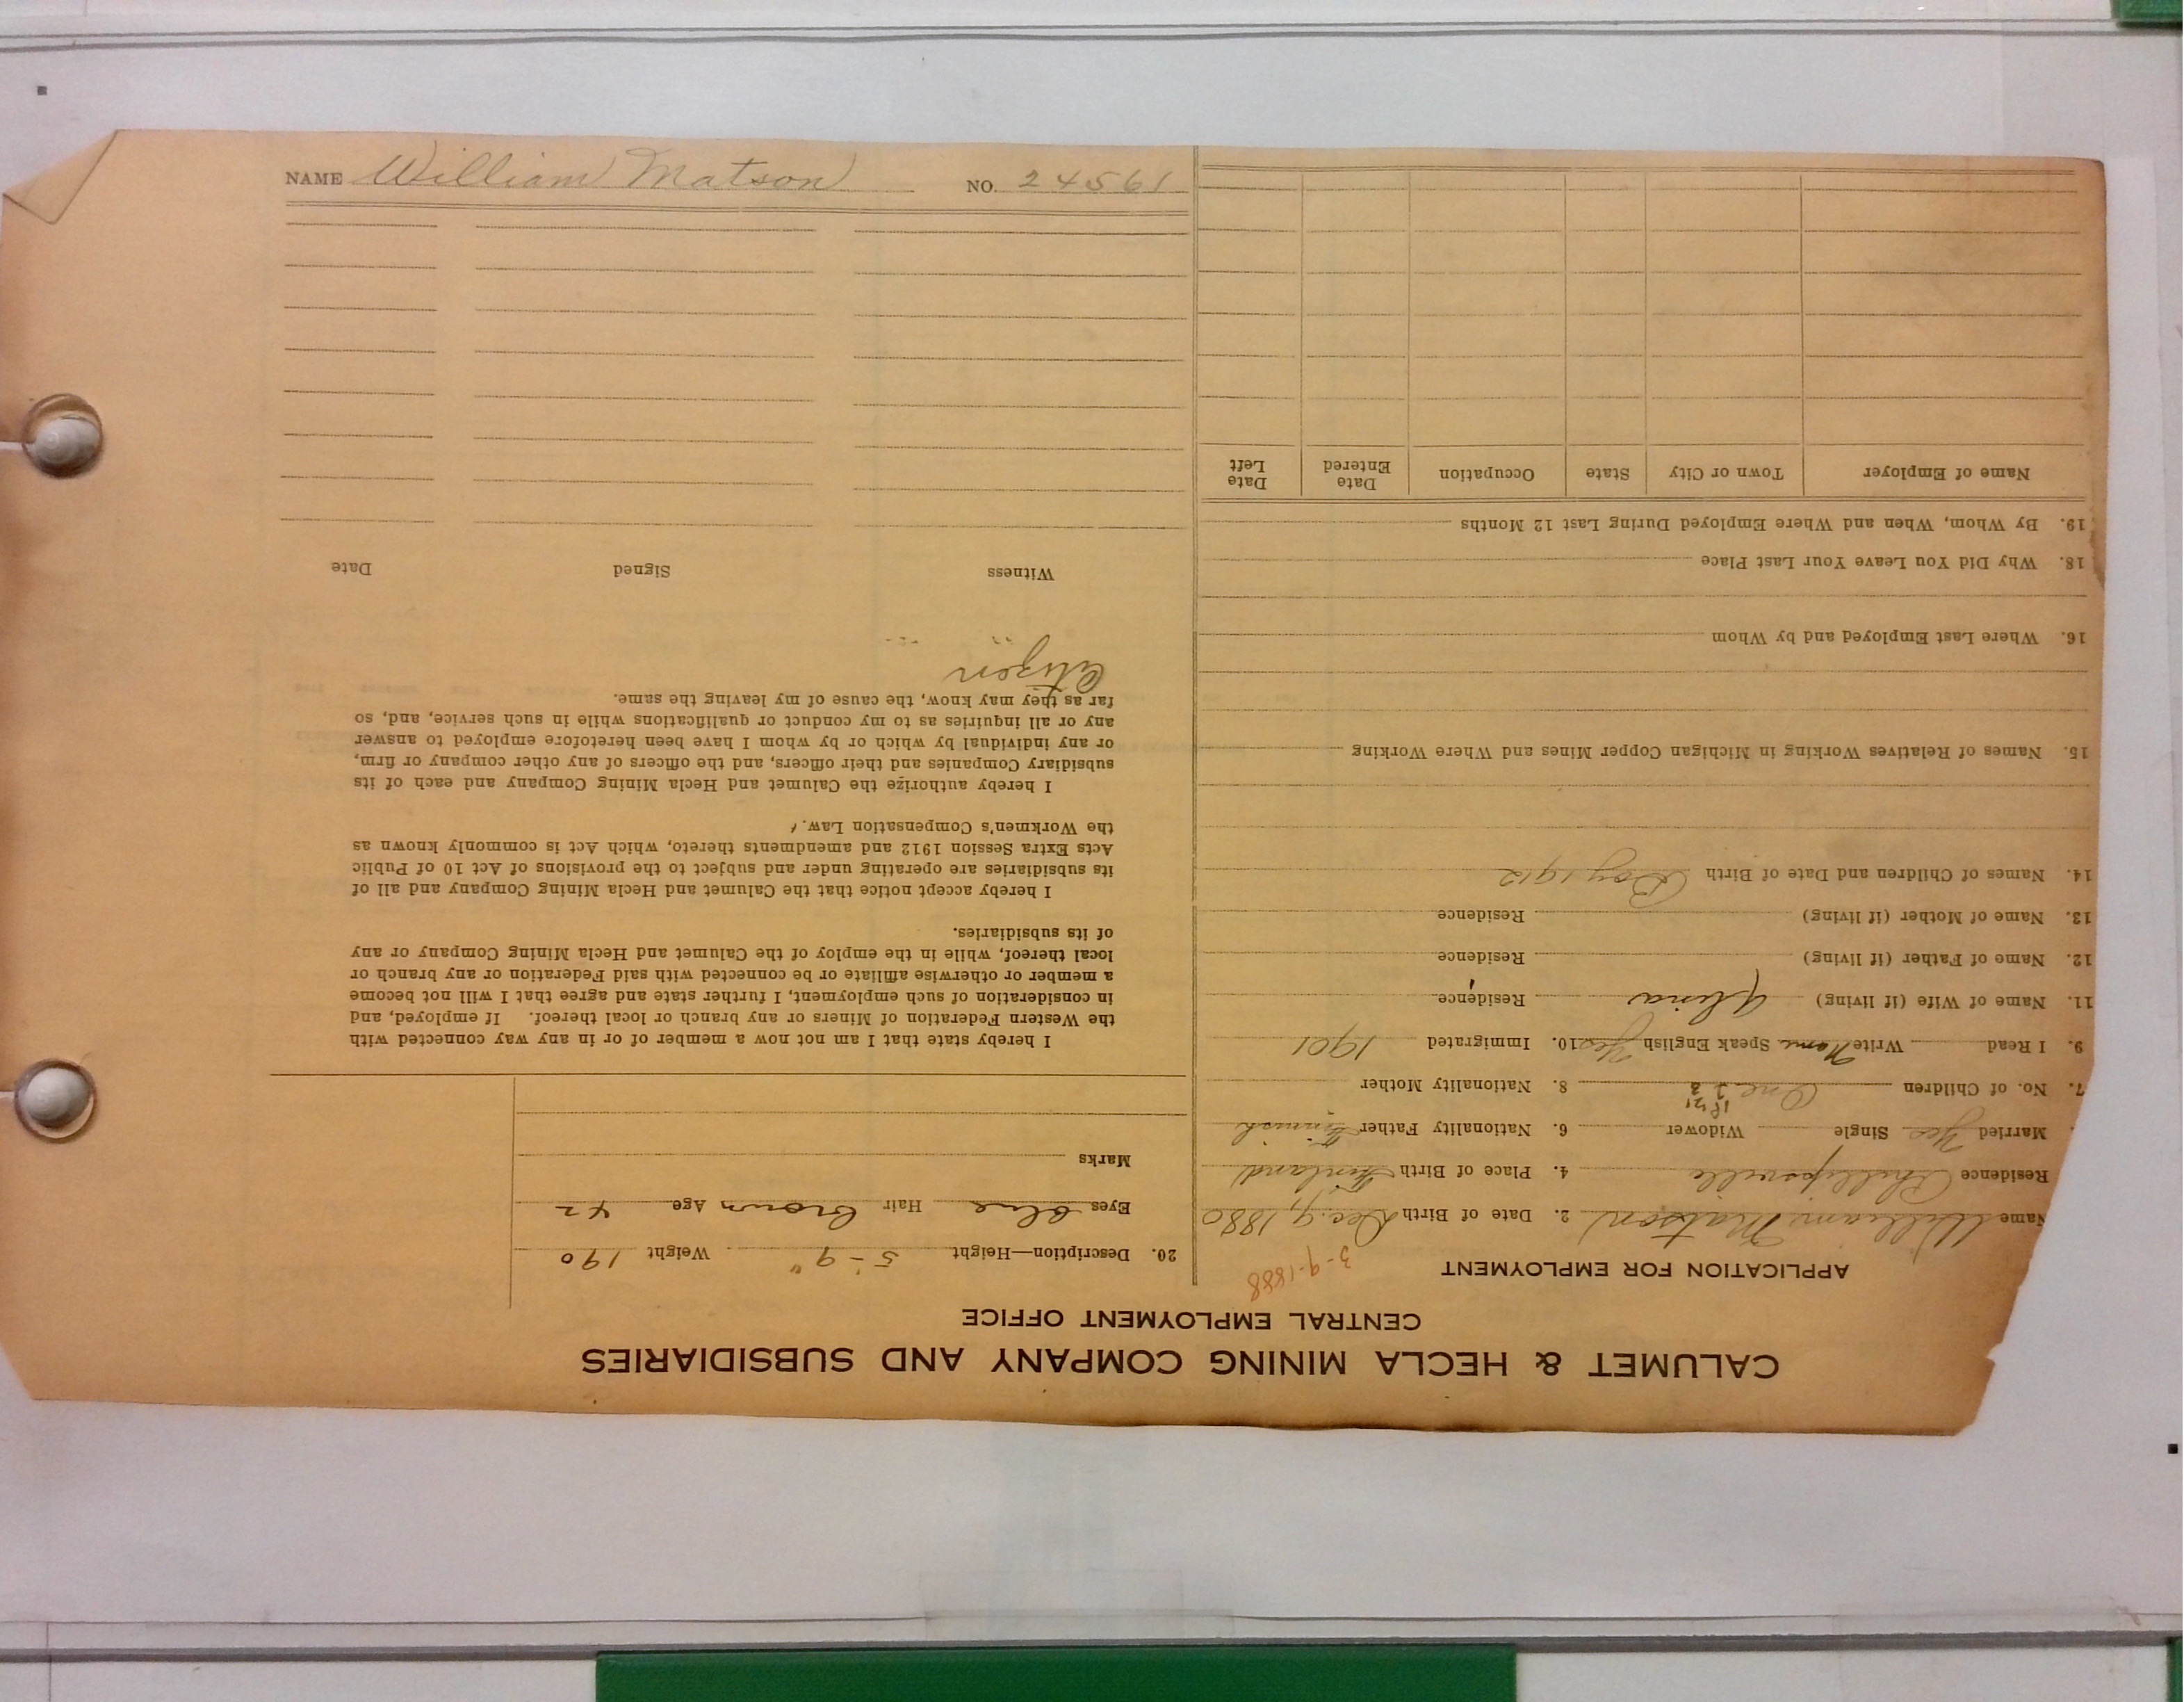 NAME William Matson NO. 24561
CALUMET & HECLA MINING COMPANY AND SUBSIDIARIES
CENTRAL EMPLOYMENT OFFICE
APPLICATION FOR EMPLOYMENT 3-9-1888
Name William Matson 2. Date of Birth Dec. 9, 1880
Residence Phillipsville 4. Place of Birth Finland
Married Yes Single Widower 6. Nationality Father Finnish
7. No. of Children One 8. Nationality Mother
9. I Read Write Name Speak English Yes 10. Immigrated 1901
11. Name of Wife (if living) Residence
12. Name of Father (if living) Residence
13. Name of Mother (if living) Residence
14. Names of Children and Date of Birth Boy 1912
15. Names of Relatives Working in Michigan Copper Mines and Where Working
16. Where Last Employed and by Whom
18. Why Did You Leave Your Last Place
19. By Whom, When and Where Employed During Last 12 Months
Name of Employer Town or City State Occupation Date Entered Date Left
20. Description—Height 5-9" Weight 190
Eyes Blue Hair Brown Age 42
Marks
I hereby state that I am not now a member of or in any way connected with
the Western Federation of Miners or any branch or local thereof. If employed, and
in consideration of such employment, I further state and agree that I will not become
a member or otherwise affiliate or be connected with said Federation or any branch or
local thereof, while in the employ of the Calumet and Hecla Mining Company or any
of its subsidiaries.
I hereby accept notice that the Calumet and Hecla Mining Company and all of
its subsidiaries are operating under and subject to the provisions of Act 10 of Public
Acts Extra Session 1912 and amendments thereto, which Act is commonly known as
the Workmen's Compensation Law.
I hereby authorize the Calumet and Hecla Mining Company and each of its
subsidiary Companies and their officers, and the officers of any other company or firm,
or any individual by which or by whom I have been heretofore employed to answer
any or all inquiries as to my conduct or qualifications while in such service, and, so
far as they may know, the cause of my leaving the same.
Citizen
Witness Signed Date